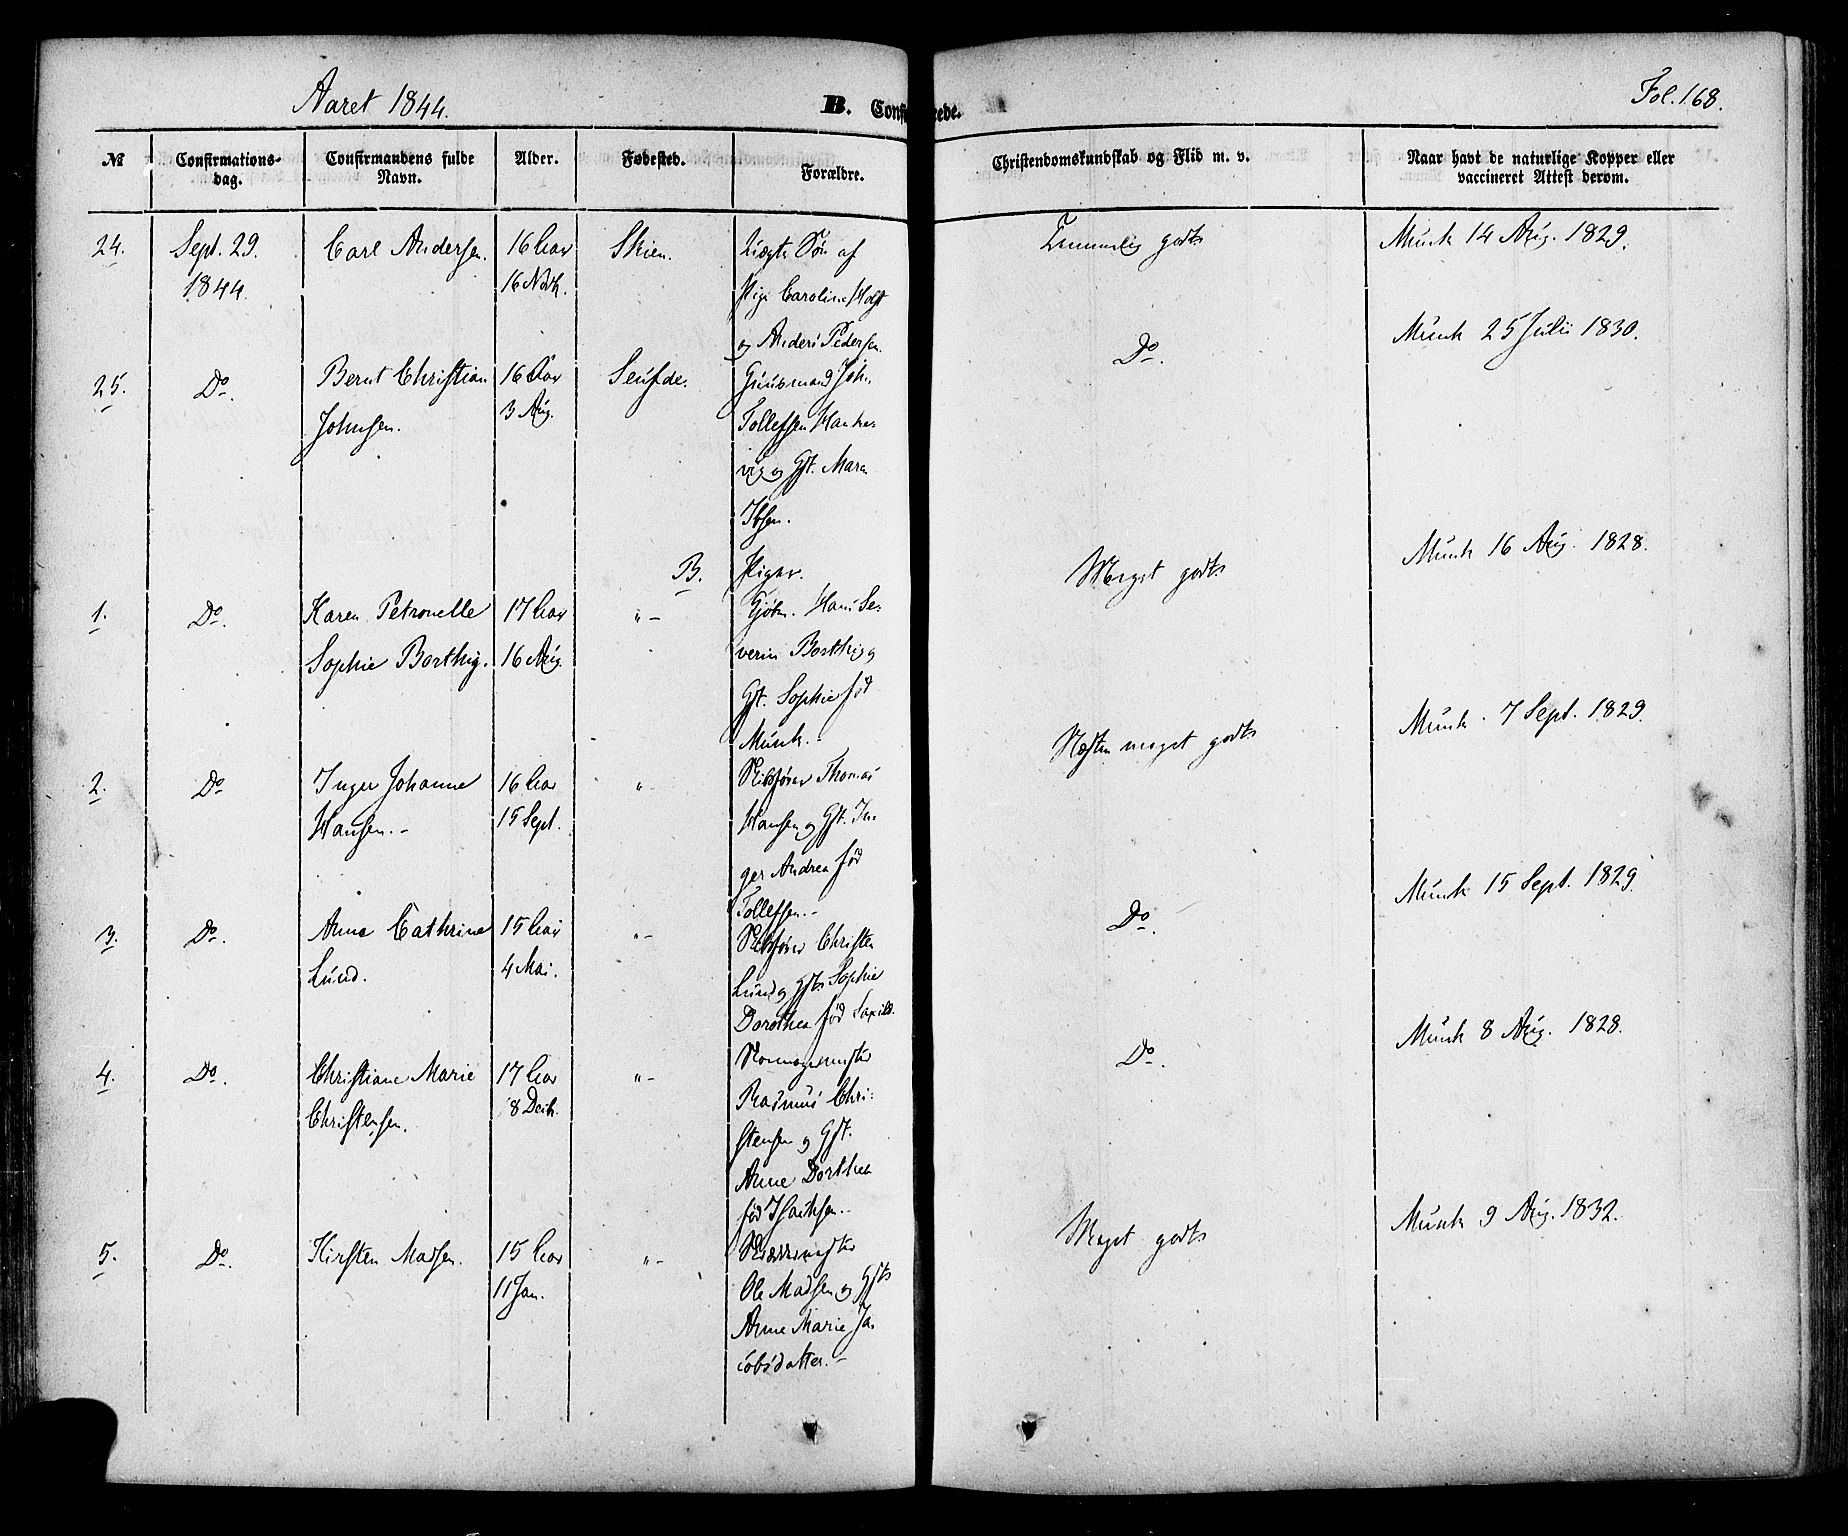 Aaret 1844.
B. Confirmerede.
Fol. 168.
№
Confirmations-
dag.
Confirmandens fulde
Navn.
Alder.
Fødested.
Forældre.
Christendomskundskab og Flid m. v.
Naar havt de naturlige Kopper eller
vaccineret Attest derom.
24.
Sept. 29.
1844.
Carl Andersen.
16 Aar
16 Novb.
Skien.
Uægte Søn af
Pige Caroline Holst
og Anders Pedersen.
Temmelig godt
Munk 14 Aug. 1829.
25.
Do.
Bernt Christian
Johnsen.
16 Aar
3 Aug.
Huusmand John
Tollefsen
og Gft. Maren
Ibsen.
Do.
Munk 25 Julii 1830.
B. Piger.
1.
Do.
Karen Petronelle
Sophie Borthig.
17 Aar
16 Aug.
" –
Hans Se-
verin Borthig og
Gft. Sophie fød
Munk. –
Meget godt
Munk 16 Aug. 1828.
2.
Do
Inger Johanne
Hansen. –
16 Aar
15 Sept.
" -
Skibsfører Thomas
Hansen og Gft. In-
ger Andrea fød
Tollefsen. –
Næsten meget godt
Munk. 7 Sept. 1829.
3.
Do.
Anne Cathrine
Lund.
15 Aar
4 Mai.
" –
Skibsfører Christen
Lund og Gft. Sophie
Dorothea fød
Do.
Munk 15 Sept. 1829.
4.
Do.
Christiane Marie
Christensen.
17 Aar
8 Decb.
" –
Rasmus Chri-
stensen og Gft.
Anne Dorthea
fød Isachsen. –
Do.
Munk 8 Aug. 1828.
5.
Do.
Kirsten Madsen.
15 Aar
11 Jan.
" –
Ole Madsen og Gft.
Anne Marie Ja-
cobsdatter. –
Meget godt
Munk 9 Aug. 1832.